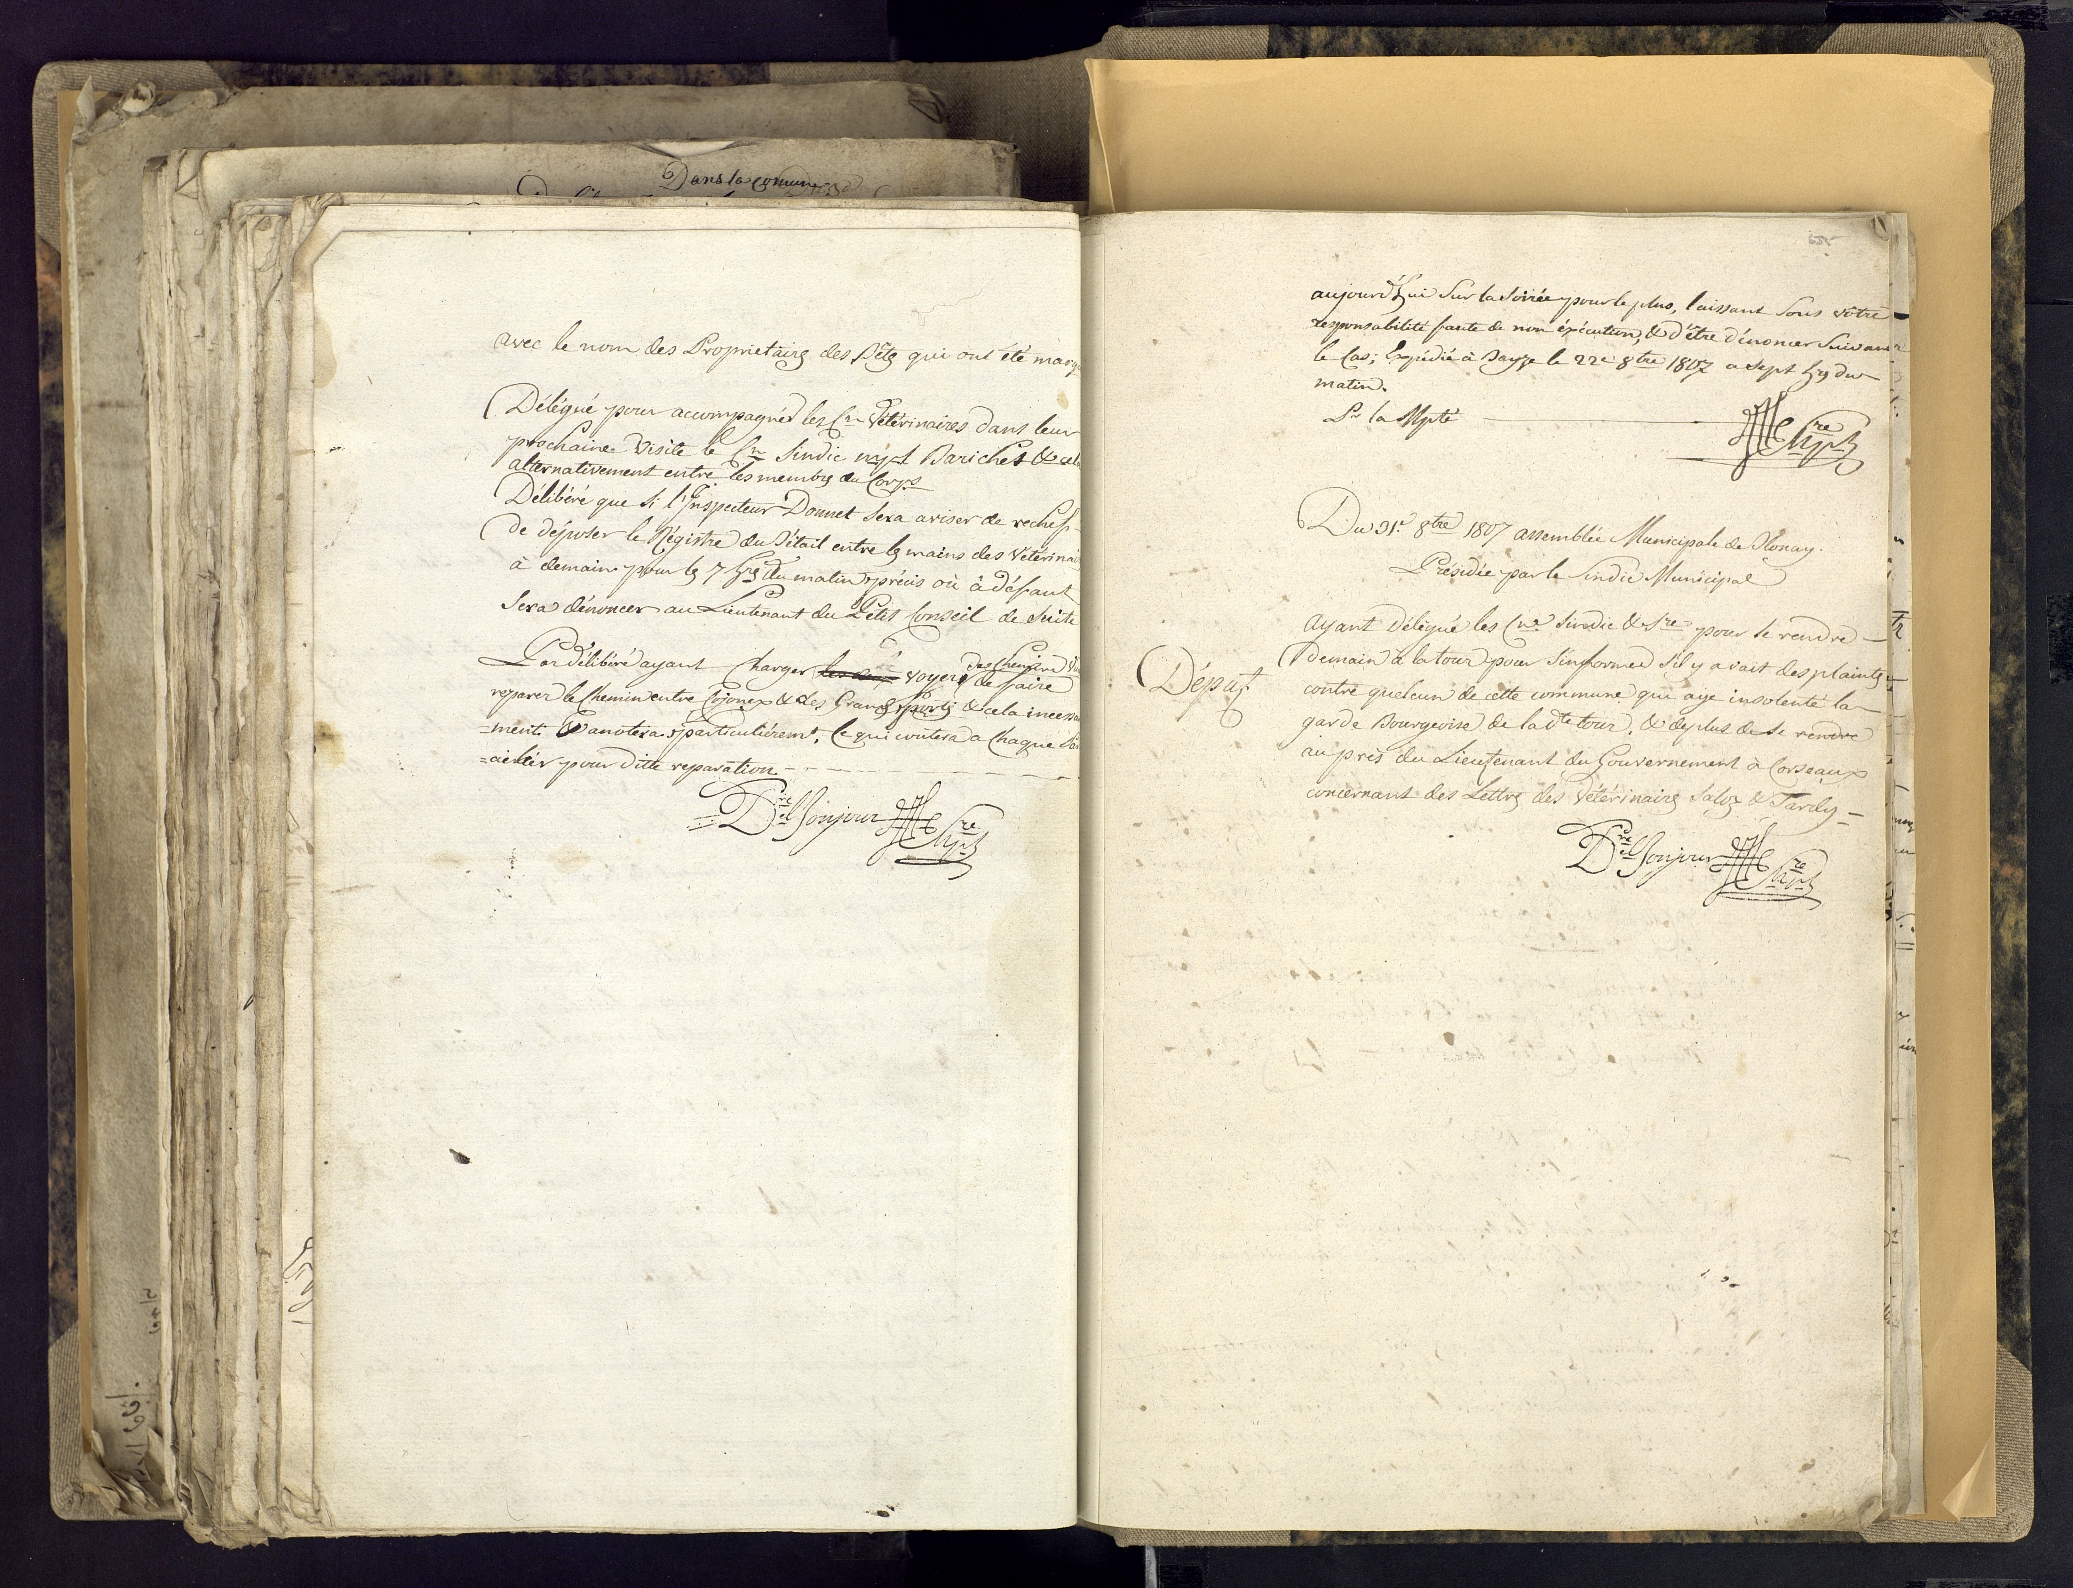 Dans la comune
avec le nom des Proprietaires des Bêtes qui ont été marq
Délégué pour accompagner les Cns Vétérinaires dans leur
prochaine visite le Cn Sindic mpl Bariches & cela
alternativement entre les membres du Corps
Délibéré que si l'Inspecteur Donnet sera aviser de rechef
de déposer le Régistre du Bétail entre les mains des Vétérinai
à demain pour les 7 hres du matin précis où à défaut
Sera dénoncer au Lieutenant du Petit Conseil de Suite
Par délibéré ayant Charger voyers des Chemins de faire
reparer le Chemin entre Cojonex & des Grands & cela incessa
=ment. & anotera particulièremt. Ce qui coutera a Chaque
pour ditte reparation
Del Bonjour
555
aujourd'hui Sur la Soirée pour le plus, laissant Sous vôtre
responsabilité faute de non éxécution, & d'être dénoncer Suivant
le Cas; Expédié à Bayze le 22e 8tre 1807 a Sept hes du
matin.
Pr la Mpté
Du 31e 8tre 1807 assemblée Municipale de Blonay.
Présidée par le Sindic Municipal
Députn
ayant délégué les Cns Sindic & Sre pour se rendre
demain à la tour pour S'informer s'il y avait des plaintes
contre quelcun de cette commune qui aye insolenté la
garde Bourgeoise de la dte tour, & de plus de se rendre
auprès du Lieutenant du Gouvernement à Corseaux
concernant des Lettres des Vétérinaires Saloz & Tardy
Del Bonjour